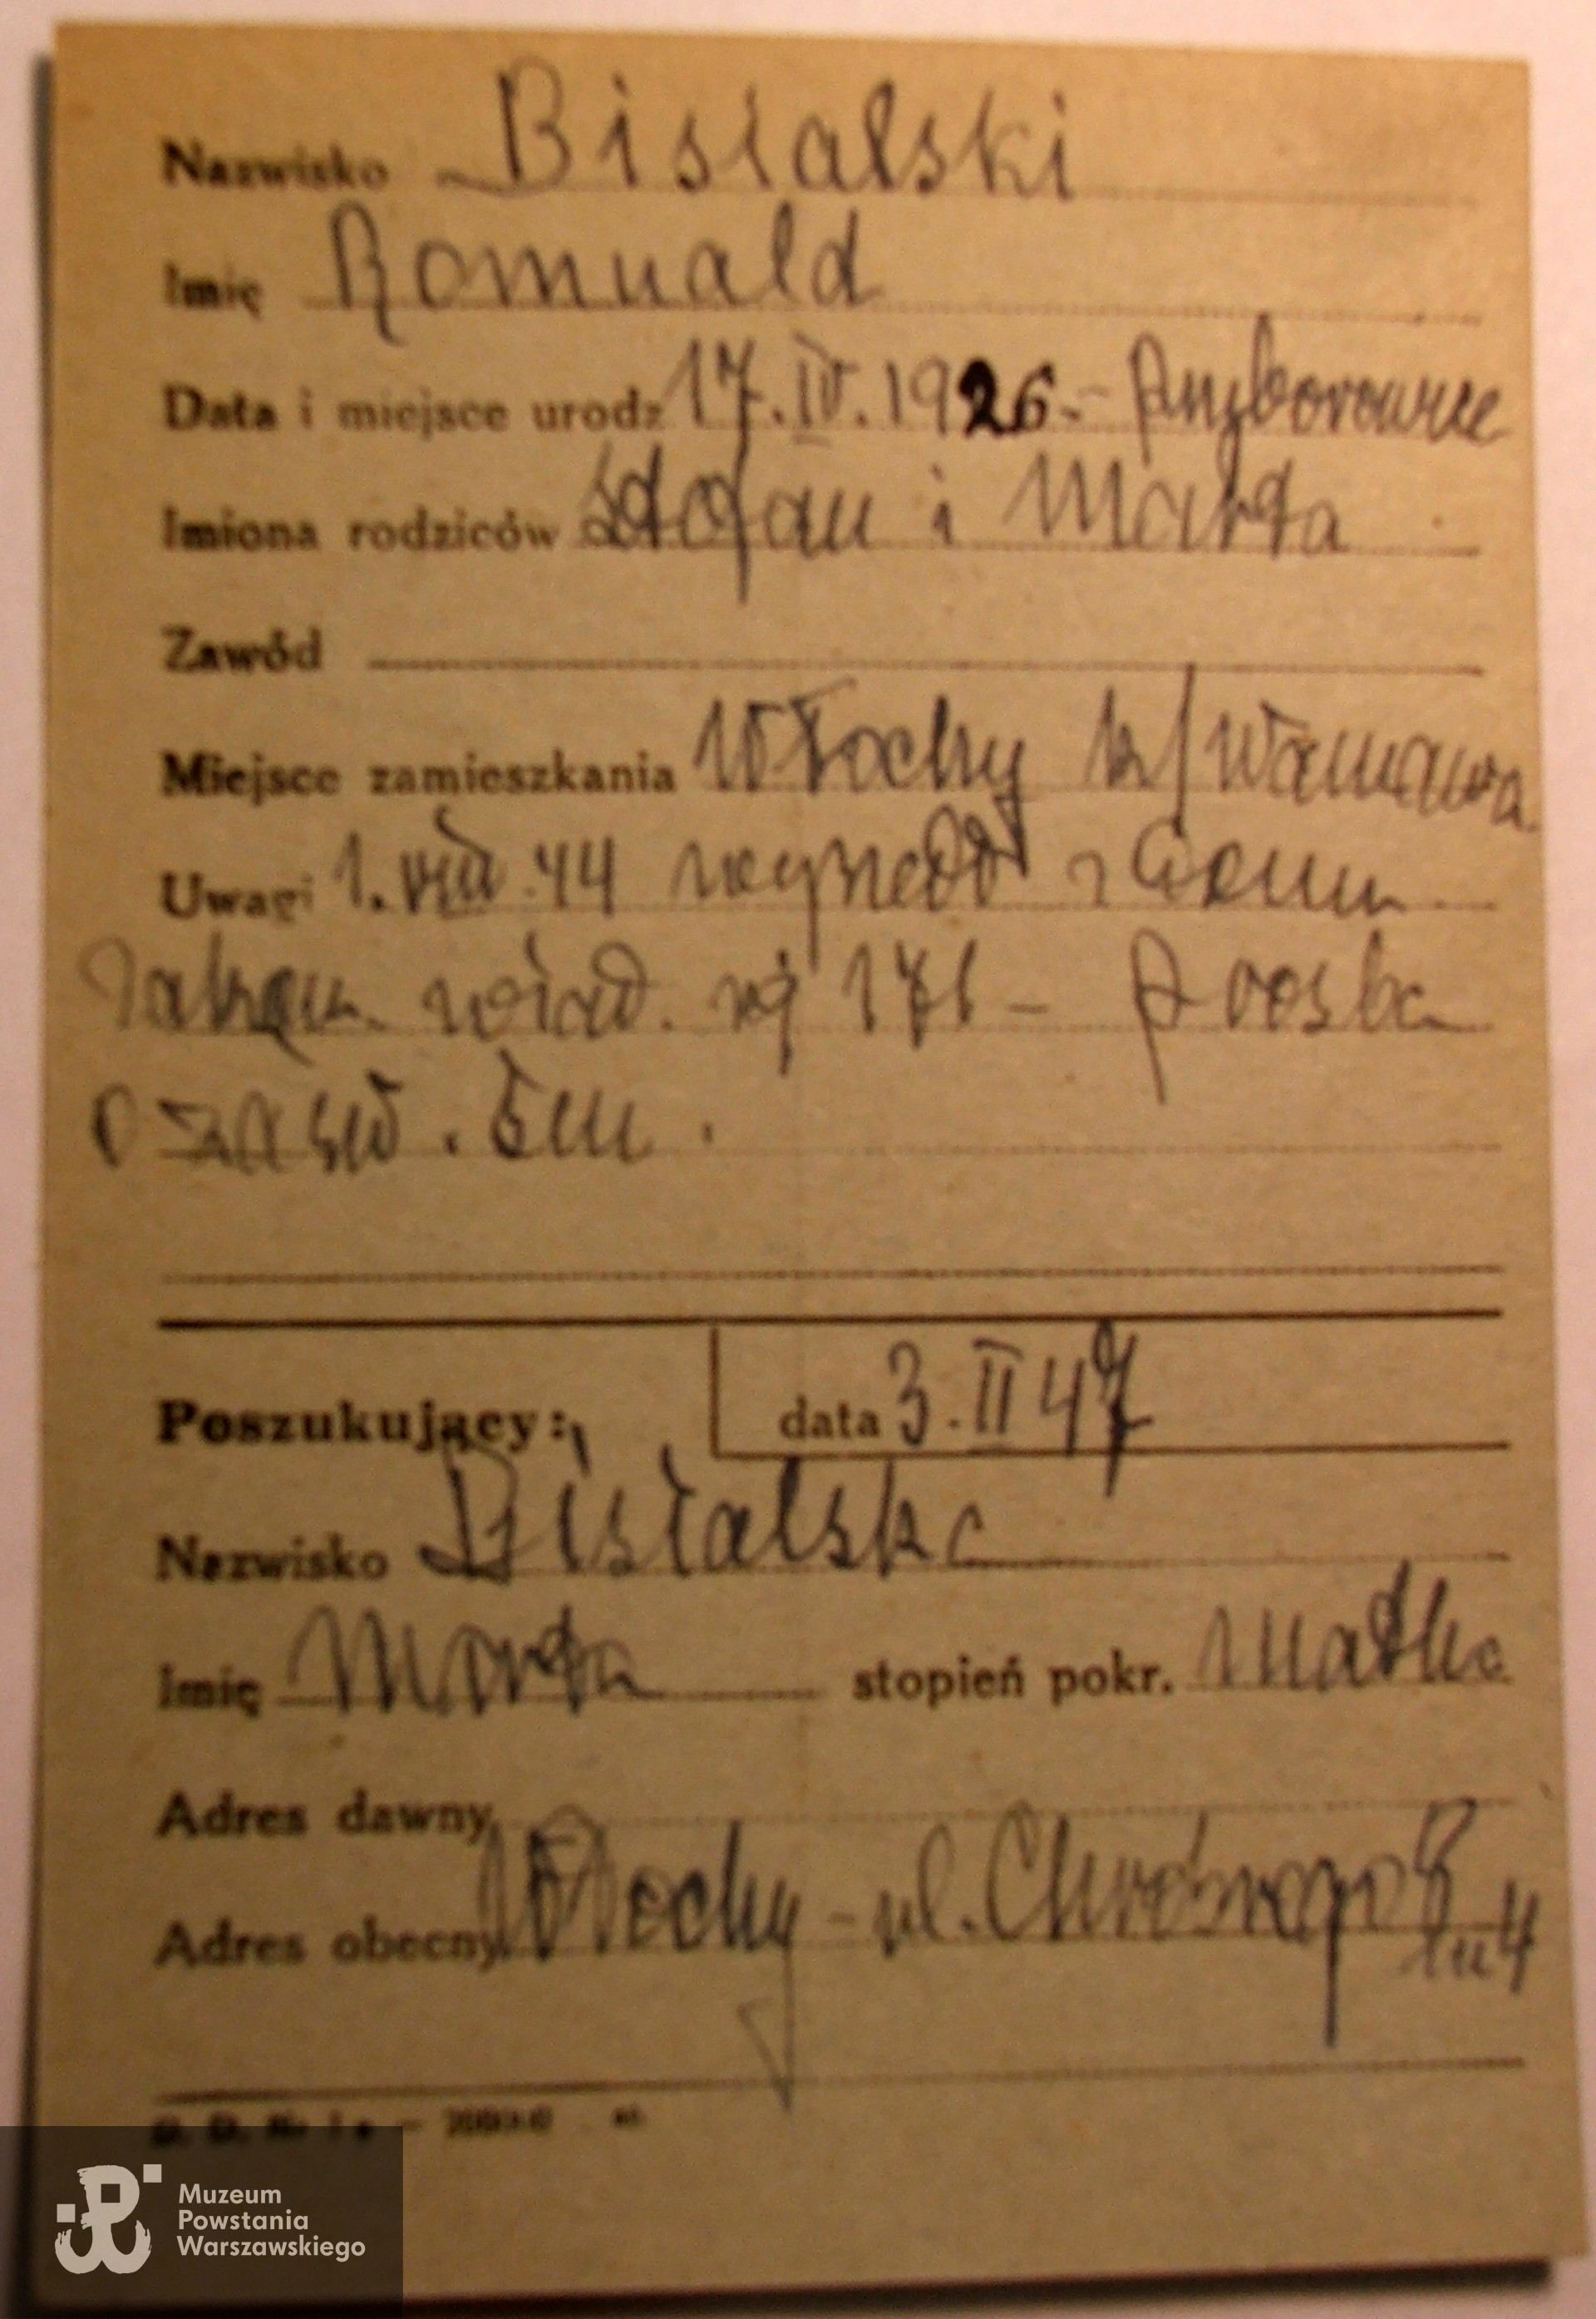 Nazwisko Bisialski
Imię Romuald
Data i miejsce urodz 17.IV.1926.- Przyborowice
Imiona rodziców Stefan i Marta
Zawód
Miejsce zamieszkania Włochy k/Warszawa
Uwagi 1.VIII.44 wyszedł z domu
wiad. prośba
o zaśw.
Poszukujący: data 3.II 47
Nazwisko Bisialska
Imię Marta stopień pokr. matka
Adres dawny
Adres obecny Włochy - ul. Chrobrego 8
m 4
Muzeum
Powstania
Warszawskiego